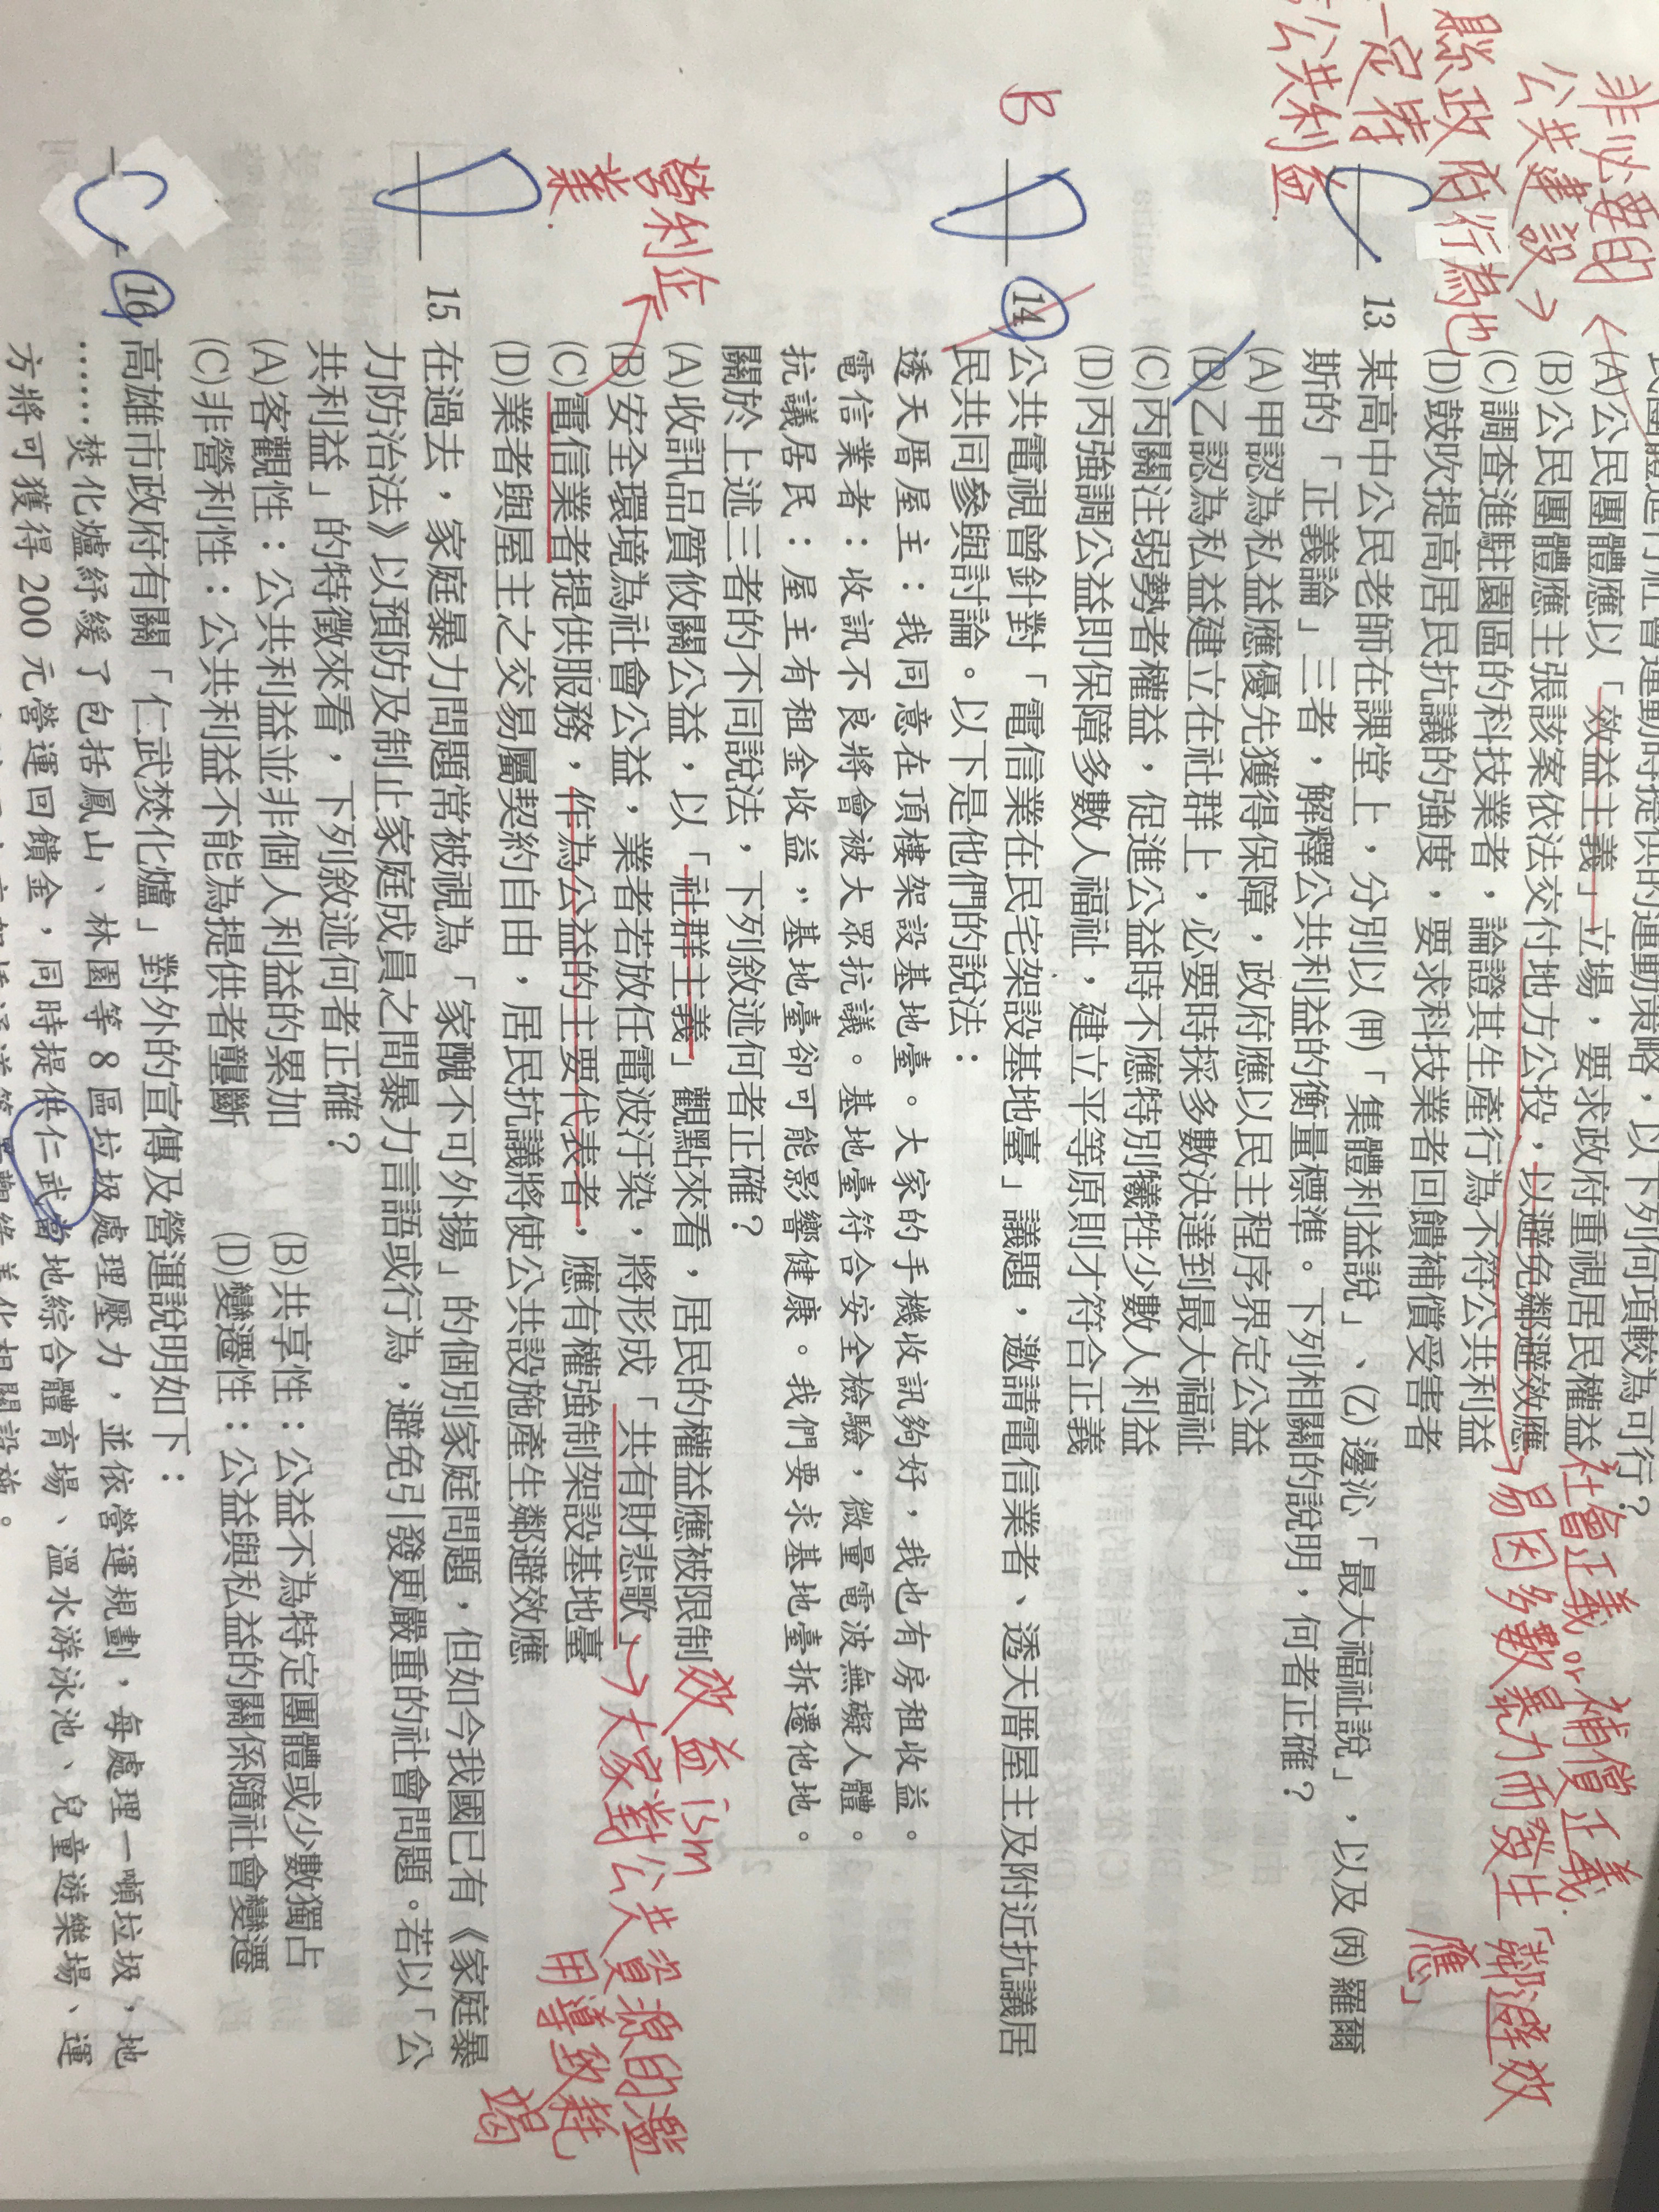 非必要的
公共建設→
縣政府行為也
一定符
公共利益.
民團體進行社會運動時提供的運動策略，以下列何項較為可行？
(A)公民團體應以「效益主義」立場，要求政府重視居民權益
社會正義 or 補償正義.
(B)公民團體應主張該案依法交付地方公投，以避免鄰避效應
→易因多數暴力而發生「鄰避效應」
(C)調查進駐園區的科技業者，論證其生產行為不符公共利益
(D)鼓吹提高居民抗議的強度，要求科技業者回饋補償受害者
C 13. 某高中公民老師在課堂上，分別以(甲)「集體利益說」、(乙)邊沁「最大福祉說」，以及(丙)羅爾
斯的「正義論」三者，解釋公共利益的衡量標準。下列相關的說明，何者正確？
(A)甲認為私益應優先獲得保障，政府應以民主程序界定公益
(B)乙認為私益建立在社群上，必要時採多數決達到最大福祉
(C)丙關注弱勢者權益，促進公益時不應特別犧牲少數人利益
(D)丙強調公益即保障多數人福祉，建立平等原則才符合正義
B D 14. 公共電視曾針對「電信業在民宅架設基地臺」議題，邀請電信業者、透天厝屋主及附近抗議居
民共同參與討論。以下是他們的說法：
透天厝屋主：我同意在頂樓架設基地臺。大家的手機收訊夠好，我也有房租收益。
電信業者：收訊不良將會被大眾抗議。基地臺符合安全檢驗，微量電波無礙人體。
抗議居民：屋主有租金收益，基地臺卻可能影響健康。我們要求基地臺拆遷他地。
關於上述三者的不同說法，下列敘述何者正確？
(A)收訊品質攸關公益，以「社群主義」觀點來看，居民的權益應被限制
效益 ism
(B)安全環境為社會公益，業者若放任電波汙染，將形成「共有財悲歌」
→大家對公共資源的濫用導致耗竭
營利企業.
(C)電信業者提供服務，作為公益的主要代表者，應有權強制架設基地臺
(D)業者與屋主之交易屬契約自由，居民抗議將使公共設施產生鄰避效應
D 15. 在過去，家庭暴力問題常被視為「家醜不可外揚」的個別家庭問題，但如今我國已有《家庭暴
力防治法》以預防及制止家庭成員之間暴力言語或行為，避免引發更嚴重的社會問題。若以「公
共利益」的特徵來看，下列敘述何者正確？
(A)客觀性：公共利益並非個人利益的累加 (B)共享性：公益不為特定團體或少數獨占
(C)非營利性：公共利益不能為提供者壟斷 (D)變遷性：公益與私益的關係隨社會變遷
C 16. 高雄市政府有關「仁武焚化爐」對外的宣傳及營運說明如下：
……焚化爐紓緩了包括鳳山、林園等 8 區垃圾處理壓力，並依營運規劃，每處理一噸垃圾，地
方將可獲得 200 元營運回饋金，同時提供仁武當地綜合體育場、溫水游泳池、兒童遊樂場、運